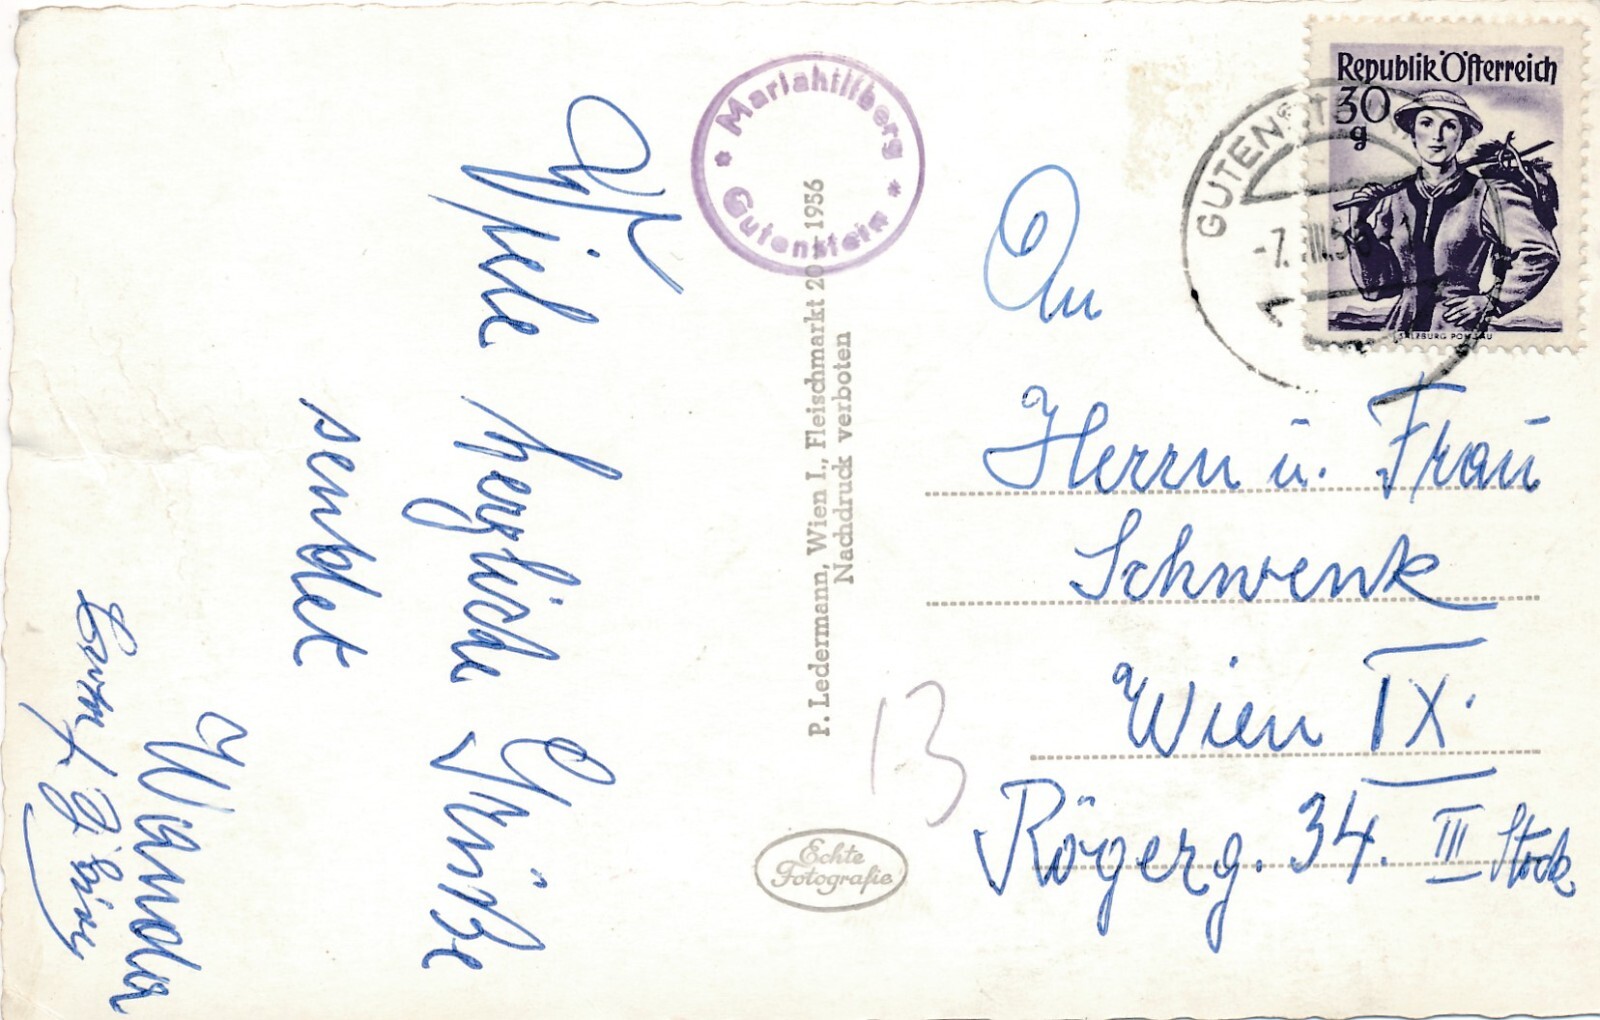 Viele herzliche Grüße
sendet
Mariahilfberg
* Gutenstein *
P. Ledermann, Wien I., Fleischmarkt 20 — 1956
Nachdruck verboten
Echte
Fotografie
13
Republik Österreich
30
g
SALZBURG PONGAU
GUTENSTEIN
An
Herrn u. Frau
Schwenk
Wien IX.
Rögerg. 34. III Stock